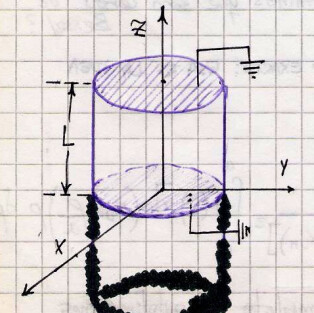 Z
L
Y
X